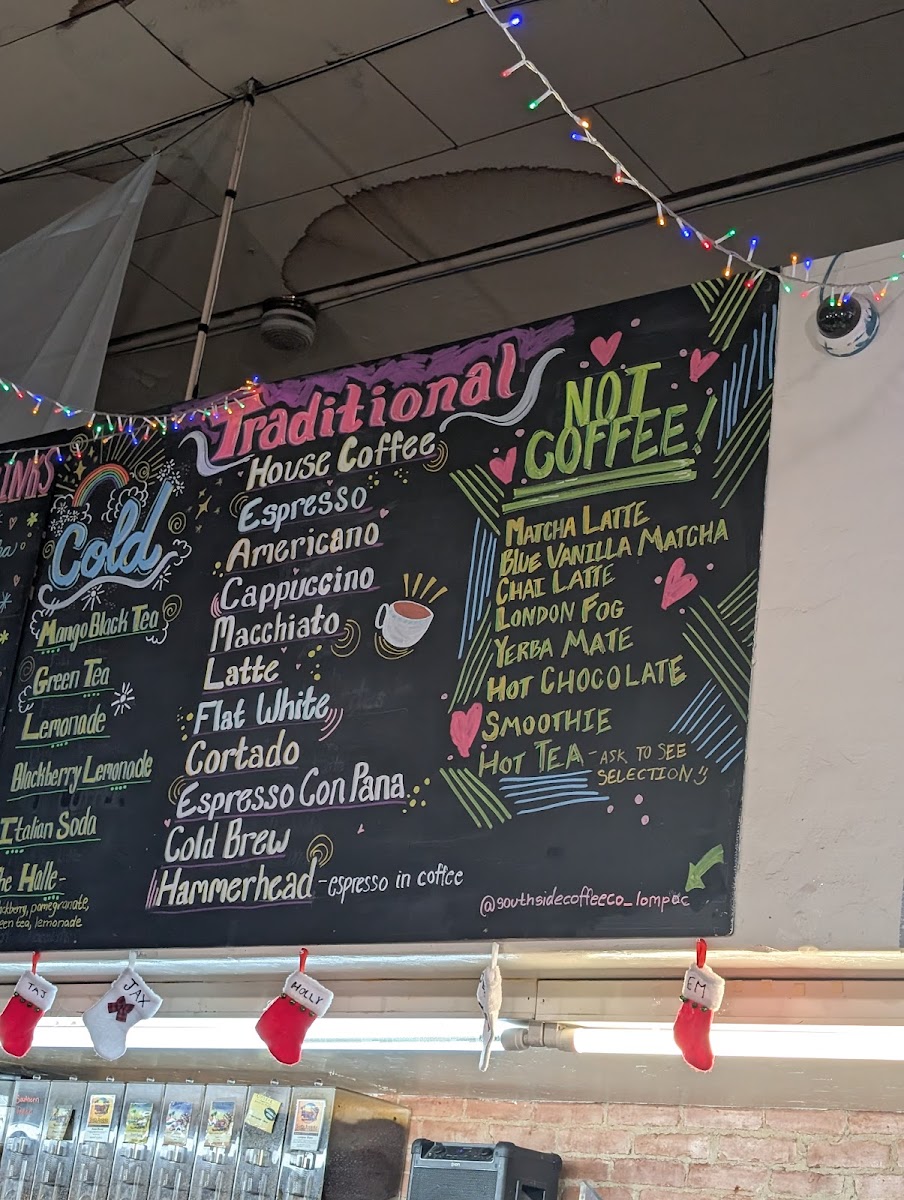 Cold
Mango Black Tea
Green Tea
Lemonade
Blackberry Lemonade
Italian Soda
Halle-
pomegranate,
tea, lemonade
Traditional
House Coffee
Espresso
Americano
Cappuccino
Macchiato
Latte
Flat White
Cortado
Espresso Con Pana
Cold Brew
Hammerhead - espresso in coffee
NOT
COFFEE!
MATCHA LATTE
BLUE VANILLA MATCHA
CHAI LATTE
LONDON FOG
YERBA MATE
HOT CHOCOLATE
SMOOTHIE
HOT TEA - ASK TO SEE
SELECTION
@southsidecoffeeco_lompoc
TAJ
JAX
HOLLY
EM